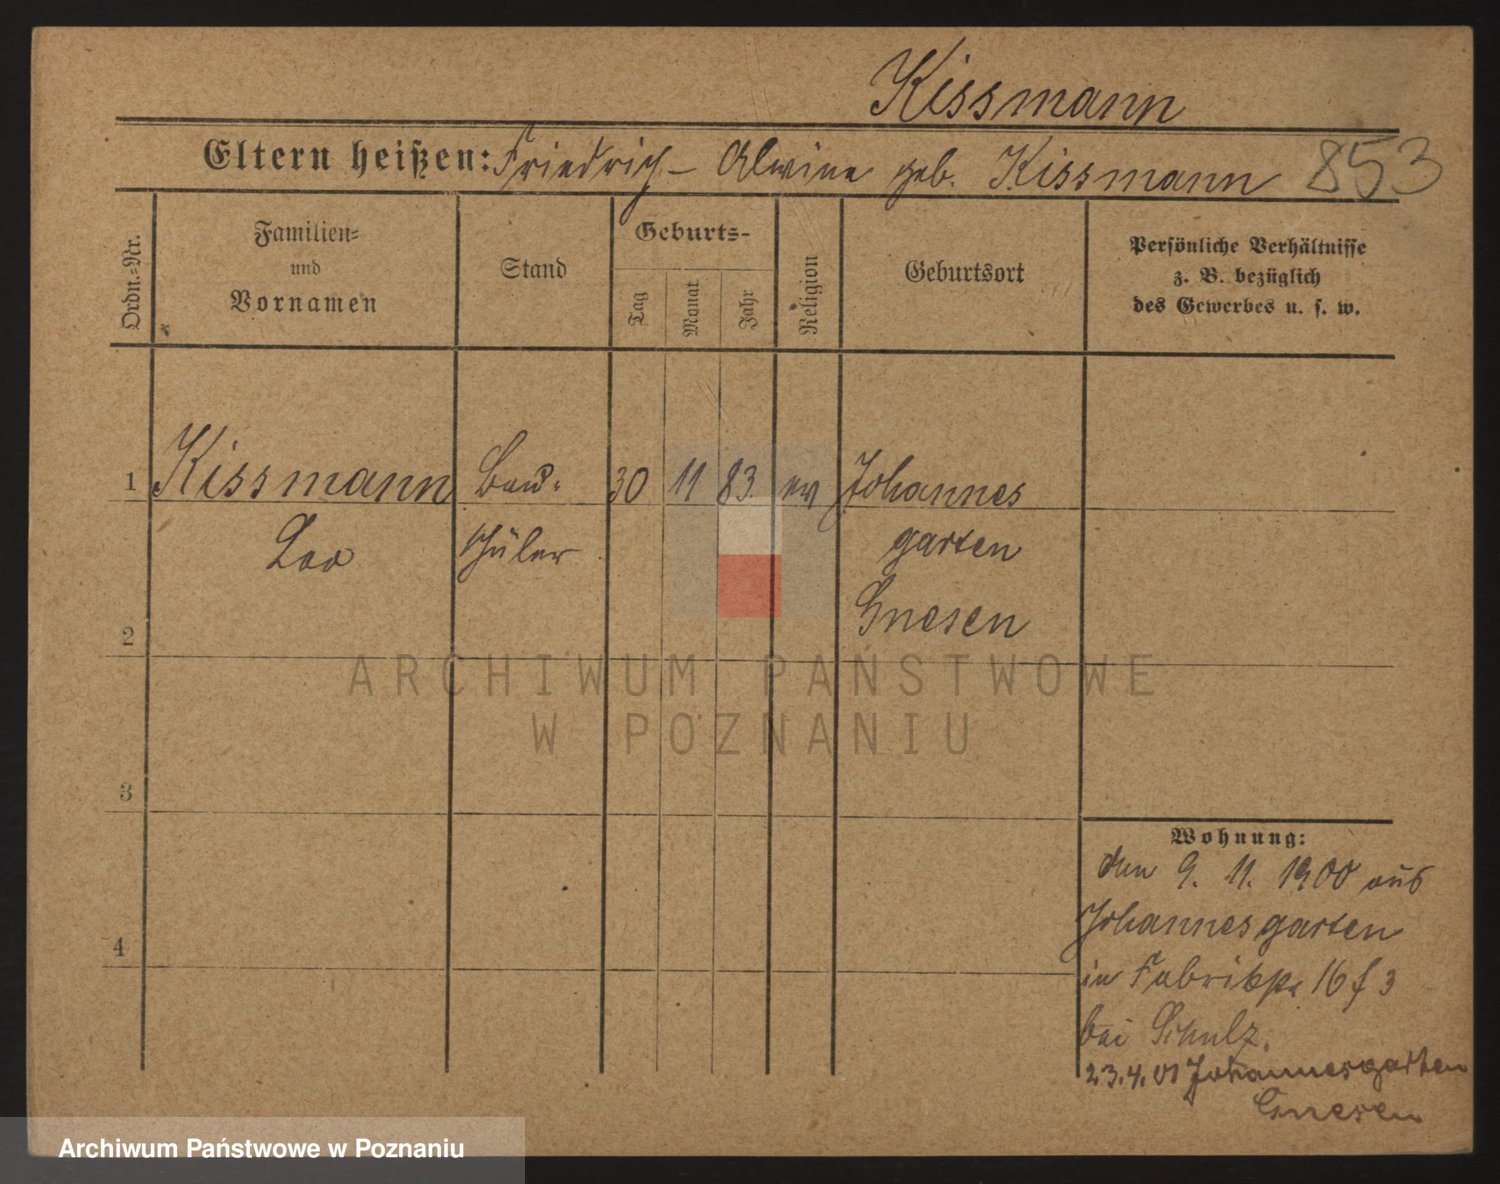 Kissmann
Eltern heißen: Friedrich – Alwine geb. Kissmann 853
Ordn.=Nr.
Familien=
und
Vornamen
Stand
Geburts=
Tag
Monat
Jahr
Religion
Geburtsort
Persönliche Verhältnisse
z. B. bezüglich
des Gewerbes u. s. w.
1 Kissmann Bau- 30 11 83. ev Johannes
Leo schüler garten
Gnesen
2
ARCHIWUM PAŃSTWOWE
W POZNANIU
3
Wohnung:
den 9. 11. 1900 aus
Johannesgarten
4
in Fabrikstr 16 f 3
bei Schulz.
23.4.01 Johannesgarten
Gnesen
Archiwum Państwowe w Poznaniu